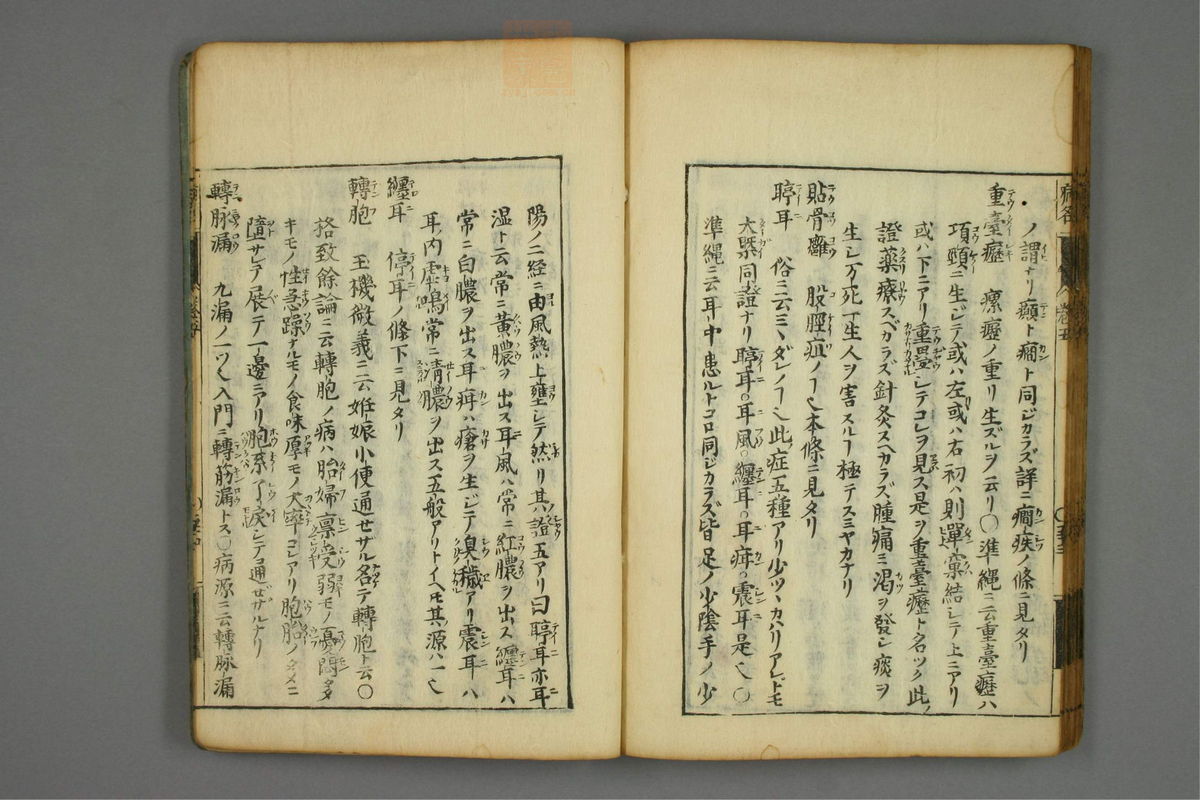 ノ謂ナリ癲ト癇ト同ジカラズ詳ニ癇疾ノ條ニ見タリ
重臺癧 瘰癧ノ重リ生ズルヲ云リ〇準縄ニ云重臺癧ハ
項頸ニ生ジテ或ハ左或ハ右初ハ則單窠結シテ上ニアリ
或ハ下ニアリ重疊シテコレヲ見ス是ヲ重臺癧ト名ヅク此
證藥療スベカラズ針灸スヘカラズ腫痛ニ渇ヲ發シ痰ヲ
生レ万死一生人ヲ害スルヿ極テスミヤカナリ
貼骨癰 股脛疽ノヿ也本條ニ見タリ
聤耳 俗ニ云ミヽダレノヿ也此症五種アリ少ツヽカハリアレドモ
大槩同證ナリ聤耳。耳風。纏耳。耳疳。震耳是也〇
準縄ニ云耳中患ルトコロ同ジカラズ皆足ノ少陰手ノ少
陽ノ二経ニ由風熱上壅シテ然リ其證五アリ曰聤耳亦耳
湿ト云常ニ黄膿ヲ出ス耳風ハ常ニ紅膿ヲ出ス纏耳ハ
常ニ白膿ヲ出ス耳疳ハ瘡ヲ生ジテ臭穢アリ震耳ハ
耳内虚鳴常ニ清膿ヲ出ス五般アリトイヘ𪜈其源ハ一也
纏耳 停耳ノ條下ニ見タリ
轉胞 玉機微義ニ云姙娠小便通せザル名テ轉胞ト云〇
格致餘論ニ云轉胞ノ病ハ胎婦禀受弱モノ憂悶多
キモノ性急躁ナルモノ食味厚モノ大率コレアリ胞胎ノタメニ
墮サレテ展テ一邊ニアリ胞系了戻シテ通ぜザルナリ
轉脉漏 九漏ノ一ツ也入門ニ轉筋漏トス〇病源ニ云轉脉漏